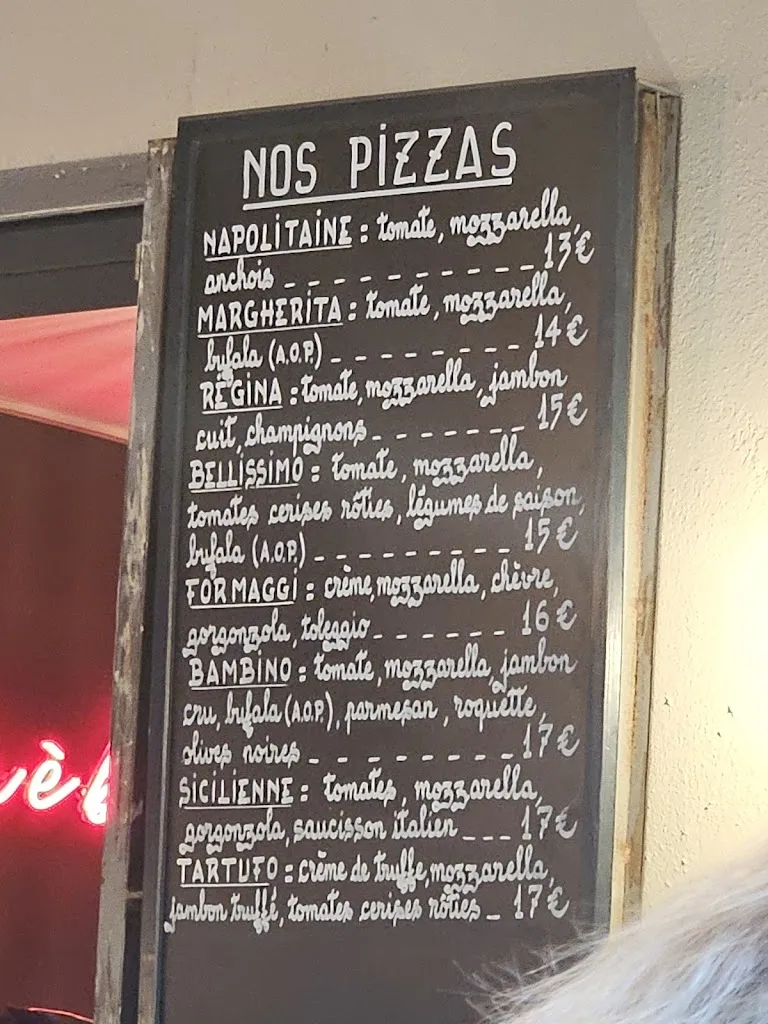 NOS PIZZAS
NAPOLITAINE : tomate, mozzarella,
anchois _ _ _ _ _ _ _ _ _ _ 13€
MARGHERITA : tomate, mozzarella,
bufala (A.O.P.) _ _ _ _ _ _ _ _ 14€
REGINA : tomate, mozzarella, jambon
cuit, champignons _ _ _ _ _ _ _ 15€
BELLISSIMO : tomate, mozzarella,
tomates cerises rôties, légumes de saison,
bufala (A.O.P.) _ _ _ _ _ _ _ _ _ 15€
FORMAGGI : crème, mozzarella, chèvre,
gorgonzola, toleggio _ _ _ _ _ _ 16€
BAMBINO : tomate, mozzarella, jambon
cru, bufala (A.O.P.), parmesan, roquette,
olives noires _ _ _ _ _ _ _ _ 17€
SICILIENNE : tomates, mozzarella,
gorgonzola, saucisson italien _ _ _ 17€
TARTUFO : crème de truffe, mozzarella,
jambon truffé, tomates cerises rôties _ 17€